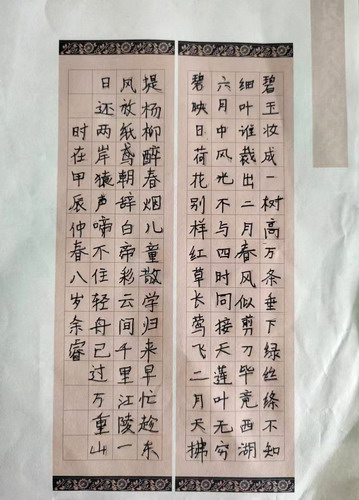 碧玉妆成一树高万条垂下绿丝绦不知
细叶谁裁出二月春风似剪刀毕竟西湖
六月中风光不与四时同接天莲叶无穷
碧映日荷花别样红草长莺飞二月天拂
堤杨柳醉春烟儿童散学归来早忙趁东
风放纸鸢朝辞白帝彩云间千里江陵一
日还两岸猿声啼不住轻舟已过万重山
时在甲辰仲春八岁余睿